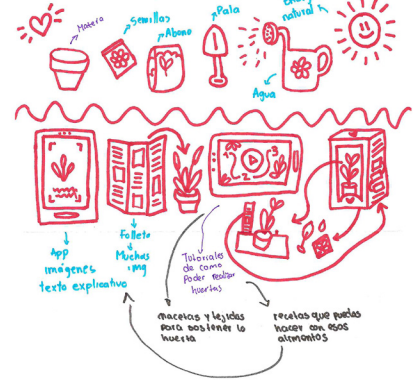 Matera
Semillas
Abono
Pala
natural
Agua
1
2
3
App
imágenes
texto explicativo
Folleto
Muchas
img
Tutoriales
de como
poder realizar
huertas
macetas y tejidos
para sostener la
huerta
recetas que puedas
hacer con esos
alimentos